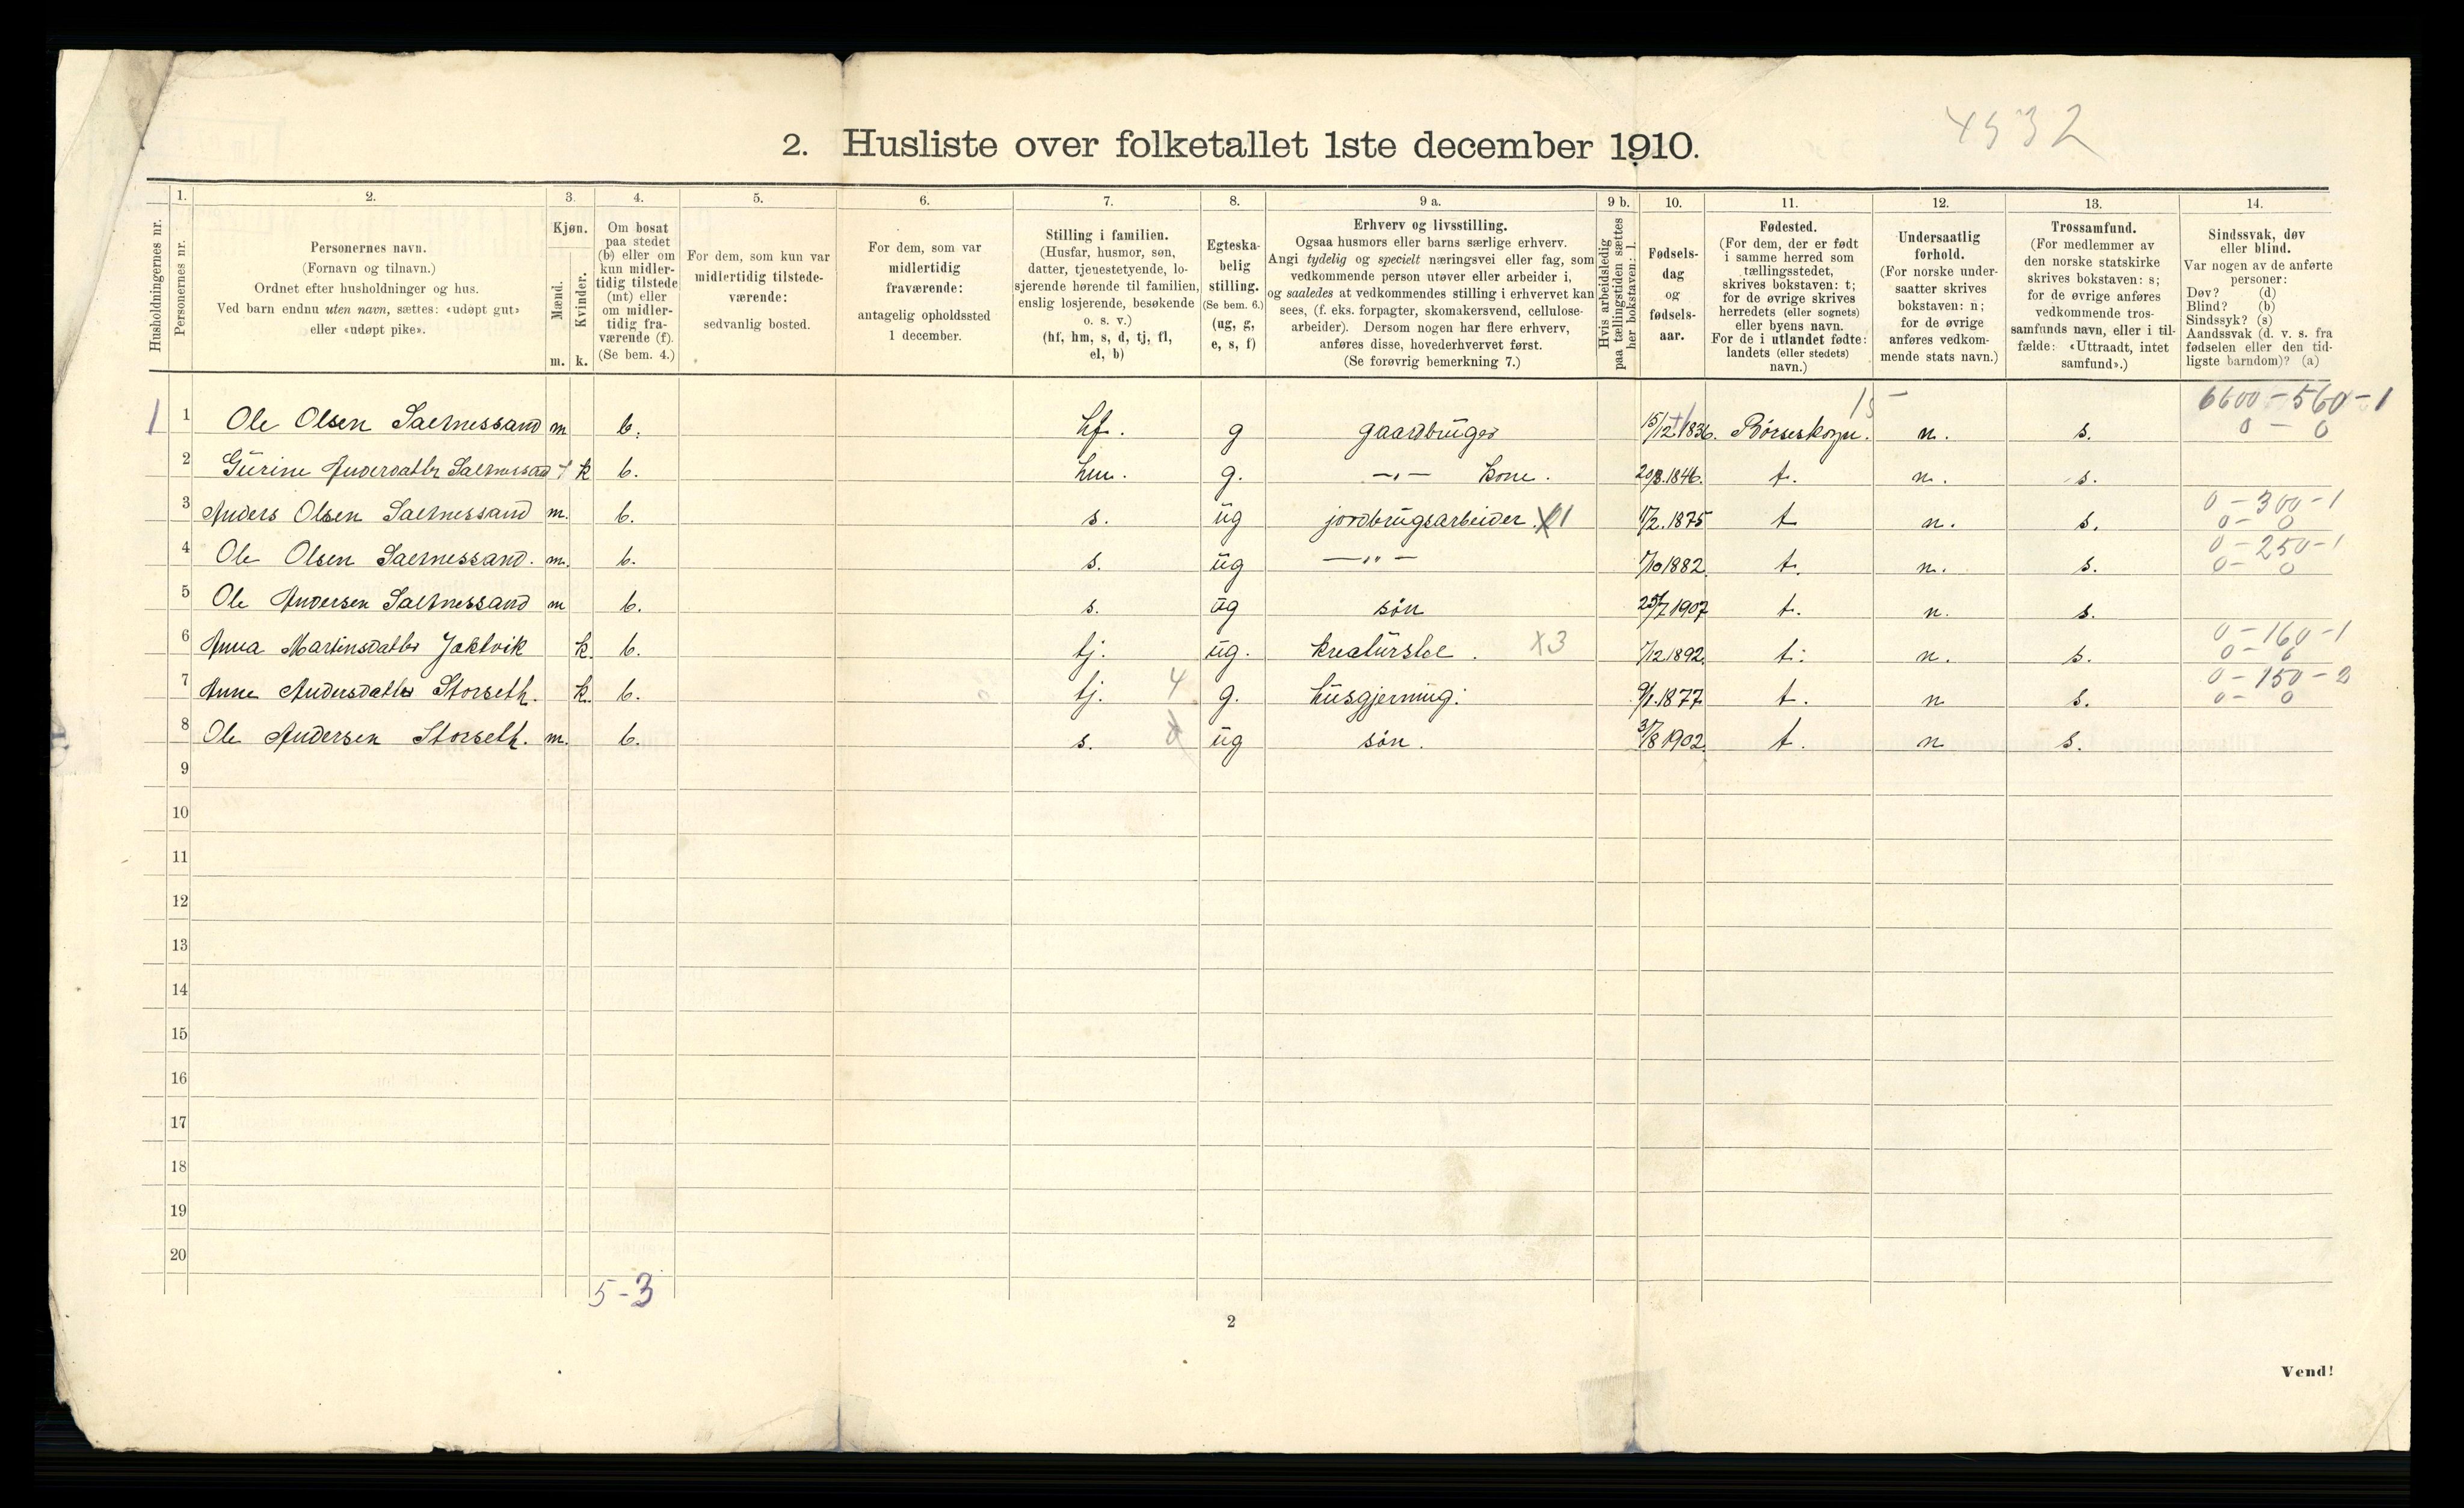 4532
2. Husliste over folketallet 1ste december 1910.
Husholdningernes nr.
1.
Personernes nr.
2.
Personernes navn.
(Fornavn og tilnavn.)
Ordnet efter husholdninger og hus.
Ved barn endnu uten navn, sættes: «udøpt gut»
eller «udøpt pike».
3.
Kjøn.
Mænd.
Kvinder.
m. k.
4.
Om bosat
paa stedet
(b) eller om
kun midler-
tidig tilstede
(mt) eller
om midler-
tidig fra-
værende (f).
(Se bem. 4.)
5.
For dem, som kun var
midlertidig tilstede-
værende:
sedvanlig bosted.
6.
For dem, som var
midlertidig
fraværende:
antagelig opholdssted
1 december.
7.
Stilling i familien.
(Husfar, husmor, søn,
datter, tjenestetyende, lo-
sjerende hørende til familien,
enslig losjerende, besøkende
o. s. v.)
(hf, hm, s, d, tj, fl,
el, b)
8.
Egteska-
belig
stilling.
(Se bem. 6.)
(ug, g,
e, s, f)
9 a.
Erhverv og livsstilling.
Ogsaa husmors eller barns særlige erhverv.
Angi tydelig og specielt næringsvei eller fag, som
vedkommende person utøver eller arbeider i,
og saaledes at vedkommendes stilling i erhvervet kan
sees, (f. eks. forpagter, skomakersvend, cellulose-
arbeider). Dersom nogen har flere erhverv,
anføres disse, hovederhvervet først.
(Se forøvrig bemerkning 7.)
9 b.
Hvis arbeidsledig
paa tællingstiden sættes
her bokstaven: l.
10.
Fødsels-
dag
og
fødsels-
aar.
11.
Fødested.
(For dem, der er født
i samme herred som
tællingsstedet,
skrives bokstaven: t;
for de øvrige skrives
herredets (eller sognets)
eller byens navn.
For de i utlandet fødte:
landets (eller stedets)
navn.)
12.
Undersaatlig
forhold.
(For norske under-
saatter skrives
bokstaven: n;
for de øvrige
anføres vedkom-
mende stats navn.)
13.
Trossamfund.
(For medlemmer av
den norske statskirke
skrives bokstaven: s;
for de øvrige anføres
vedkommende tros-
samfunds navn, eller i til-
fælde: «Uttraadt, intet
samfund».)
14.
Sindssvak, døv
eller blind.
Var nogen av de anførte
personer:
Døv? (d)
Blind? (b)
Sindssyk? (s)
Aandssvak (d. v. s. fra
fødselen eller den tid-
ligste barndom)? (a)
15 6600-560-1
1 1 Ole Olsen Saltnessand m b. hf. g gaardbruger 15/12 1836. Børseskogn. n. s. 0-0
2 Gurine Andersdatter Saltnessand k b. hm. g. -"- kone. 20/8.1846. t. n. s.
0-300-1
3 Anders Olsen Saltnessand m. b. s. ug jordbrugsarbeider. X1 1875 t n. s. 0-0
0-250-1
4 Ole Olsen Saltnessand. m. b. s. ug -"- 1882. t. n. s. 0-0
5 Ole Andersen Saltnessand m b. s. ug søn 25/7 1907 t. n. s.
0-160-1
6 Anna Martinsdatter Jaktvik k. b. tj. ug. kreaturstel. X3 1892. t. n. s. 0-0
0-150-2
7 Anne Andersdatter Storseth. k. b. tj. 4 g. husgjerning. 1877 t. n s. 0-0
8 Ole Andersen Storseth. m. b. s. ug søn. 1902. t. n s.
9
10
11
12
13
14
15
16
17
18
19
20
5-3
2
Vend!